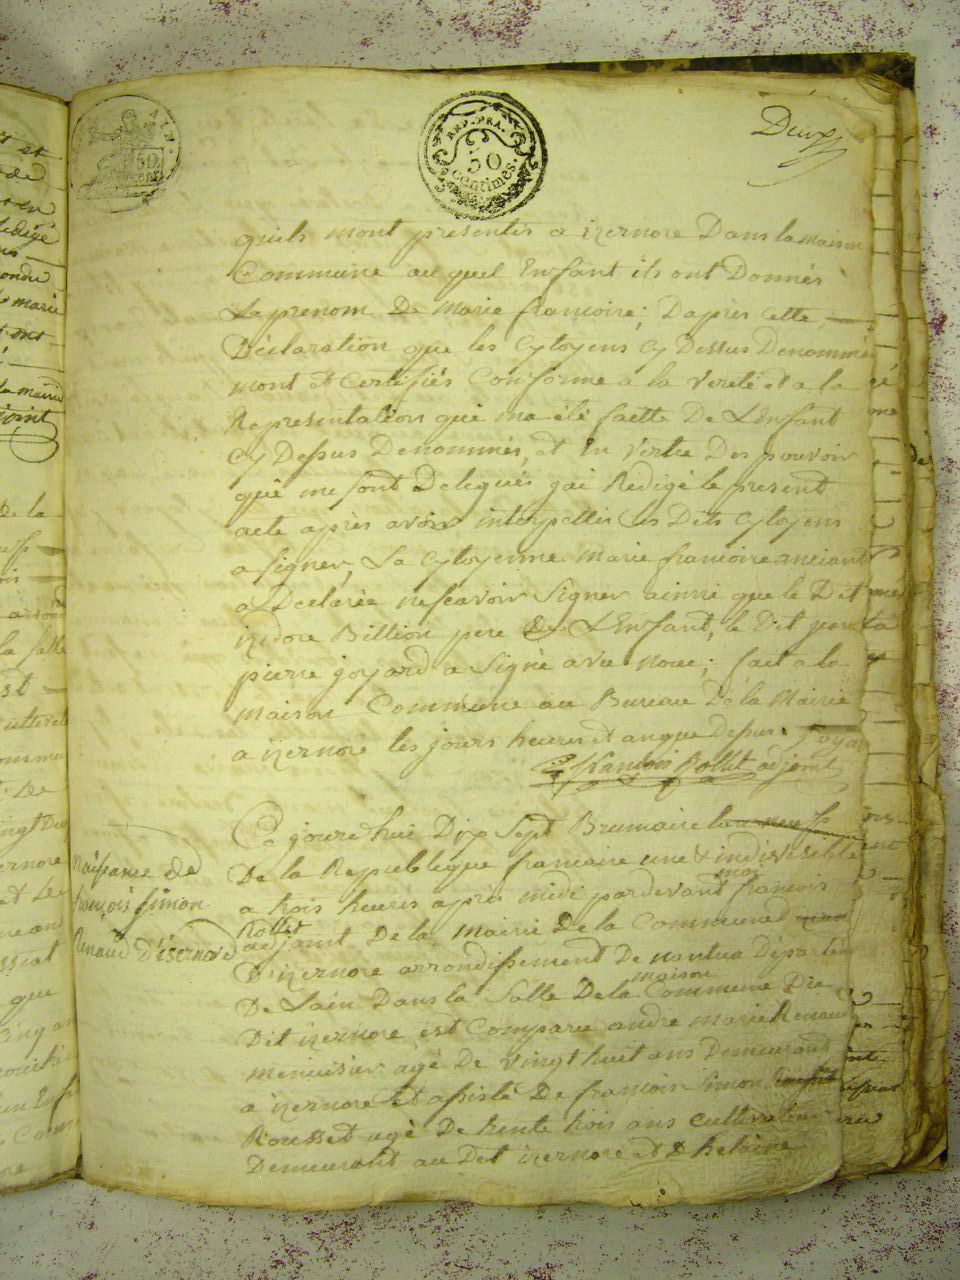 AIN.
50
REP. FRA.
50
centimes.
Deux
quils mont presentés a izernore Dans la maison
Commune au quel Enfant ils ont Donnés
La prenom De marie francoise; Daprès cette
Déclaration que les Cytoyens Cy Dessus Denommé
mont et Certifiés Conforme a la verité et a la
Representation qué ma été faitte De L'Enfant
Cy Dessus Denommés, et En vertue Des pouvoir
qué me sont Delegués jai Redigé le present
acte après avoir interpellés les Dits Cytoyens
a signer, La Cytoyenne marie francoise anciant
a Déclarée ne scavoir signer ainsi que le Dit
izidore Billion pere De L'Enfant, le Dit jean
pierre joyard a signé avec nous; fait a la
maison Commune au Bureau De la Mairie
a izernore les jours heures et an que Dessus. joyard
françois Rollet adjoint
Ce jourd hui Dix Sept Brumaire la neuf
De la Republique francaise une & indivisible
a trois heures après midi pardevant moi francois
Rollet
adjoint De la mairie De la Commune
D'izernore arrondissement De nantua Départem
De Lain Dans la Salle De la maison Commune Die
Dit izernore est Comparu andré marie Renaud
menuisier agé De vingt huit ans Demeurant
a izernore et assisté De francois Simon
Rousset agé De trente trois ans cultivateur
Demeurant au Dit izernore et D helaine
Naissance de
françois Simon
Renaud d'isernore